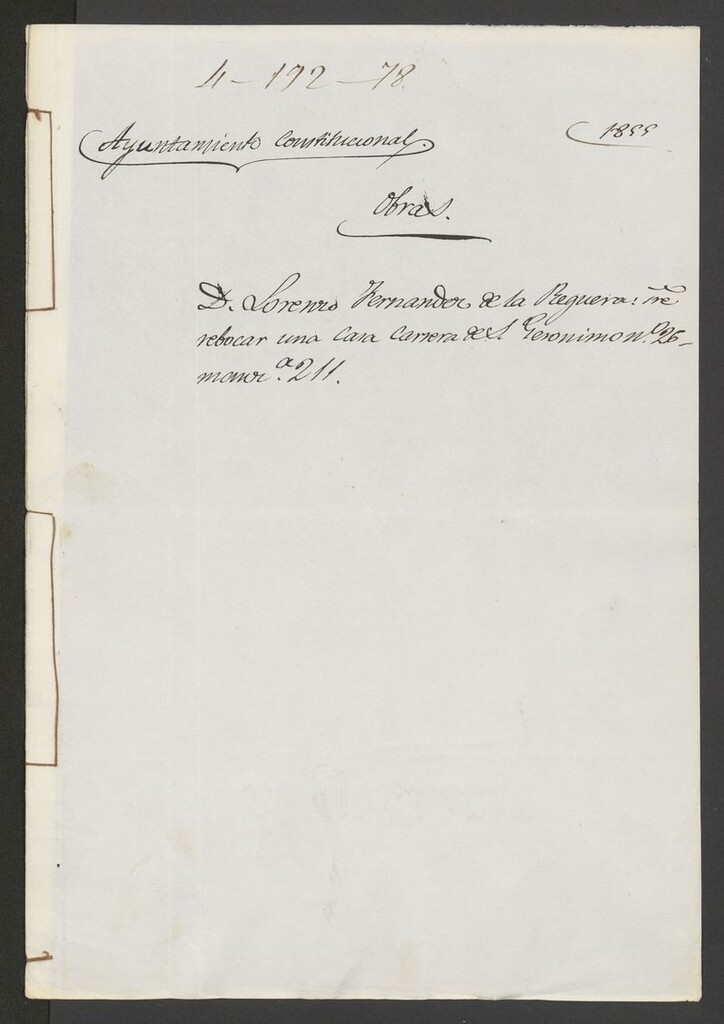 4-192-78.
Ayuntamiento Constitucional. 1855
Obras.
D. Lorenzo Fernandez de la Reguera: sre
rebocar una casa Carrera de S. Geronimo n.º 26-
manz.ª 211.